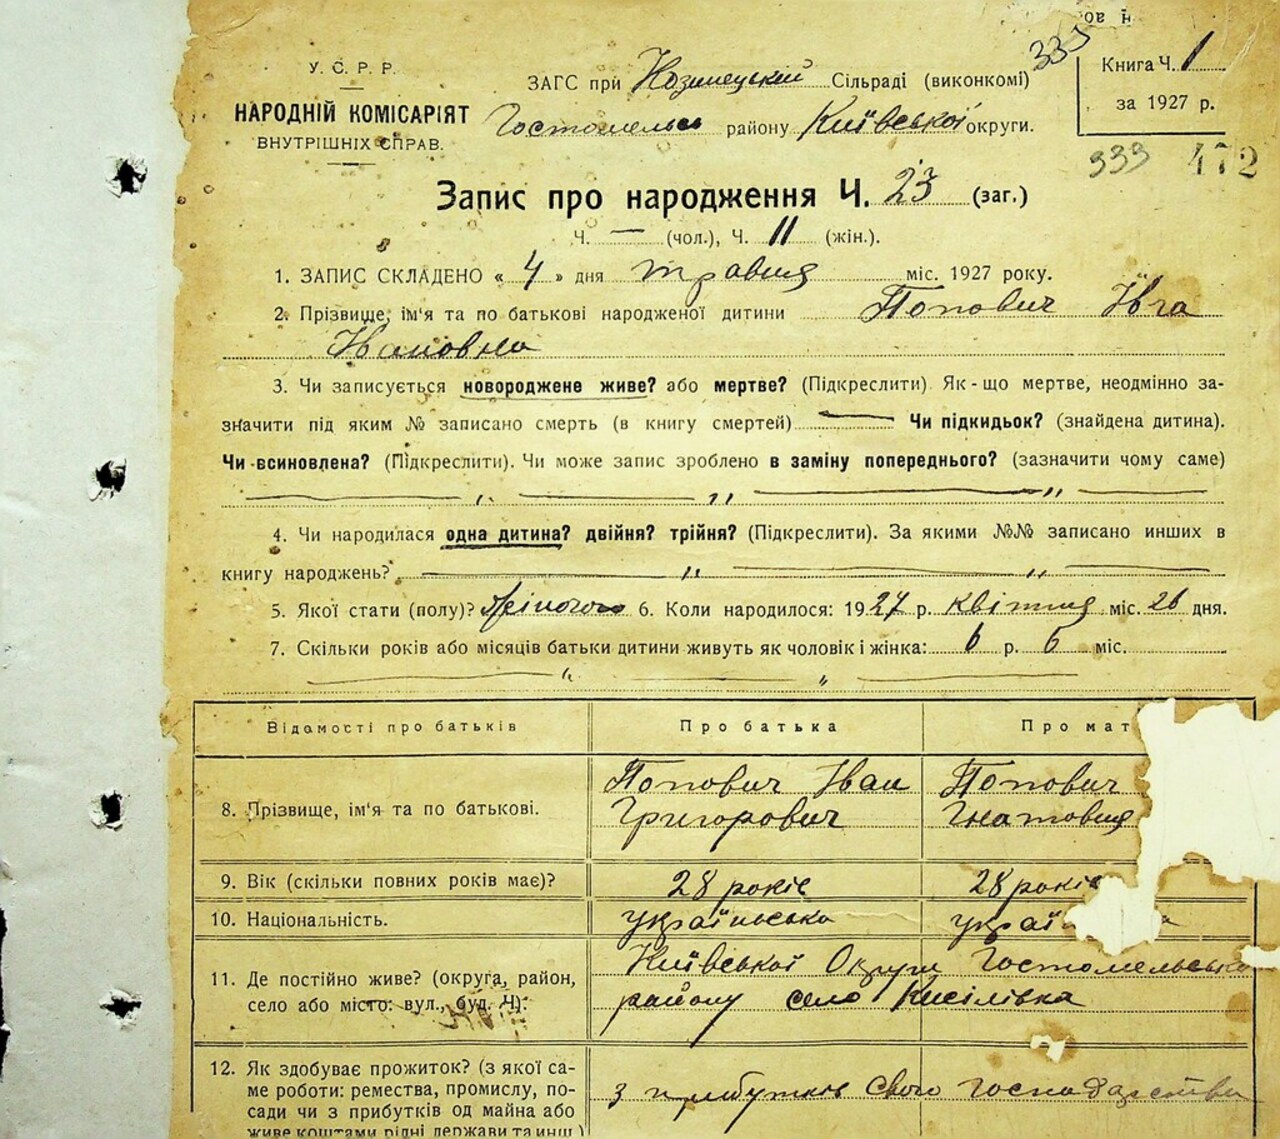 335
У. С. Р. Р.
НАРОДНІЙ КОМІСАРІЯТ
ВНУТРІШНІХ СПРАВ.
ЗАГС при Сільраді (виконкомі)
Гостомельсь району Київської округи.
Книга Ч. 1
за 1927 р.
333 472
Запис про народження Ч. 23 (заг.)
Ч. — (чол.), Ч. 11 (жін.).
1. ЗАПИС СКЛАДЕНО « 4 » дня травця міс. 1927 року.
2. Прізвище, ім'я та по батькові народженої дитини Попович Івга
Івановна
3. Чи записується новороджене живе? або мертве? (Підкреслити) Як-що мертве, неодмінно за-
значити під яким № записано смерть (в книгу смертей) — Чи підкидьок? (знайдена дитина).
Чи всиновлена? (Підкреслити). Чи може запис зроблено в заміну попереднього? (зазначити чому саме)
— „ — „ — „ —
4. Чи народилася одна дитина? двійня? трійня? (Підкреслити). За якими №№ записано инших в
книгу народжень? — „ — „ —
5. Якої стати (полу)? 6. Коли народилося: 1927 р. квітця міс. 26 дня.
7. Скільки років або місяців батьки дитини живуть як чоловік і жінка: 6 р. 6 міс.
— „ — „ —
Відомості про батьків Про батька Про мат
8. Прізвище, ім'я та по батькові.
Попович Іван
Григорович
Попович
Гнатовця
9. Вік (скільки повних років має)? 28 років 28 років
10. Національність. українська украї
11. Де постійно живе? (округа, район,
село або місто: вул., буд. Ч).
Київської Округи Гостомельсько
району село Кисілівка
12. Як здобуває прожиток? (з якої са-
ме роботи: ремества, промислу, по-
сади чи з прибутків од майна або
живе коштами рідні держави та инш.)
з прибутків свого господарства